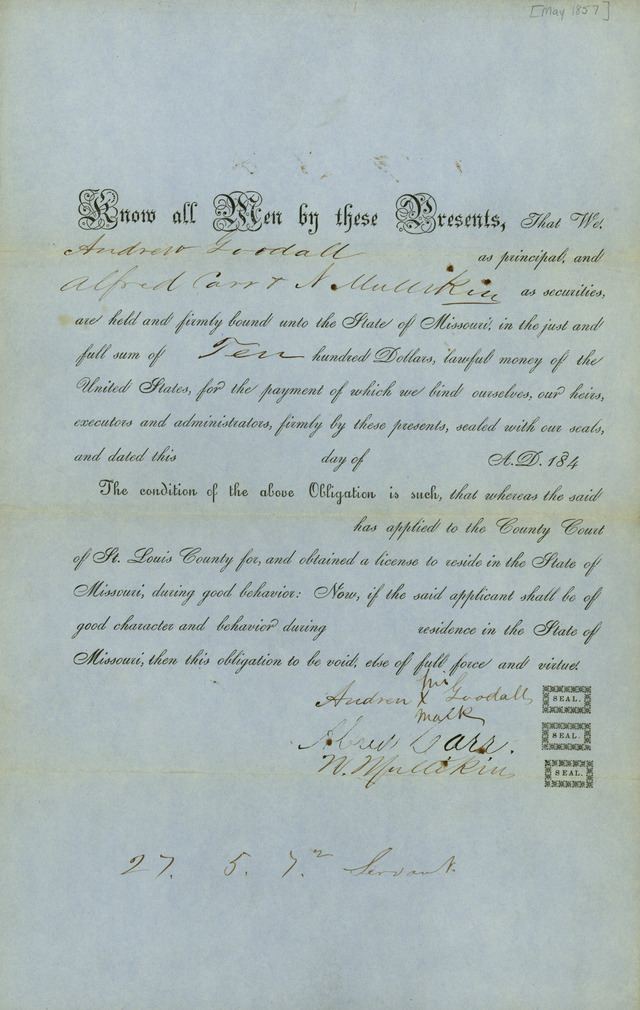 [May 1857]
Know all Men by these Presents, That We,
Andrew Goodall as principal, and
Alfred Carr & N Mullikin as securities,
are held and firmly bound unto the State of Missouri, in the just and
full sum of Ten hundred Dollars, lawful money of the
United States, for the payment of which we bind ourselves, our heirs,
executors and administrators, firmly by these presents, sealed with our seals,
and dated this day of A.D. 184
The condition of the above Obligation is such, that whereas the said
has applied to the County Court
of St. Louis County for, and obtained a license to reside in the State of
Missouri, during good behavior: Now, if the said applicant shall be of
good character and behavior during residence in the State of
Missouri, then this obligation to be void, else of full force and virtue.
his
Andrew X Goodall SEAL.
mark
Carr. SEAL.
N. Mullikin SEAL.
27. 5. 7. Servant